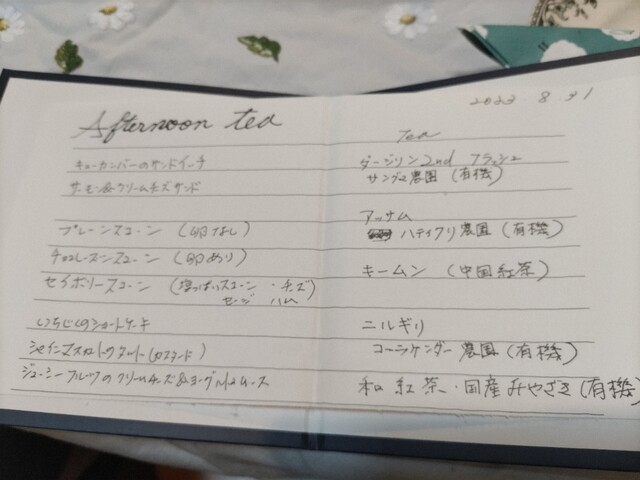 Afternoon tea
キューカンバーのサンドイッチ
サーモン&クリームチーズサンド
プレーンスコーン (卵なし)
チョコレーズンスコーン (卵あり)
セイボリースコーン (塩っぱいスコーン・チーズ)
セージ ハム
いちじくのショートケーキ
シャインマスカットのタルト(カスタード)
ジューシーフルーツのクリームチーズ&ヨーグルトムース
2023 8 31
Tea
ダージリン2nd フラッシュ
農園 (有機)
アッサム
ハティクリ農園 (有機)
キームン (中国紅茶)
ニルギリ
コーラケンダー農園 (有機)
和紅茶・国産みやざき(有機)